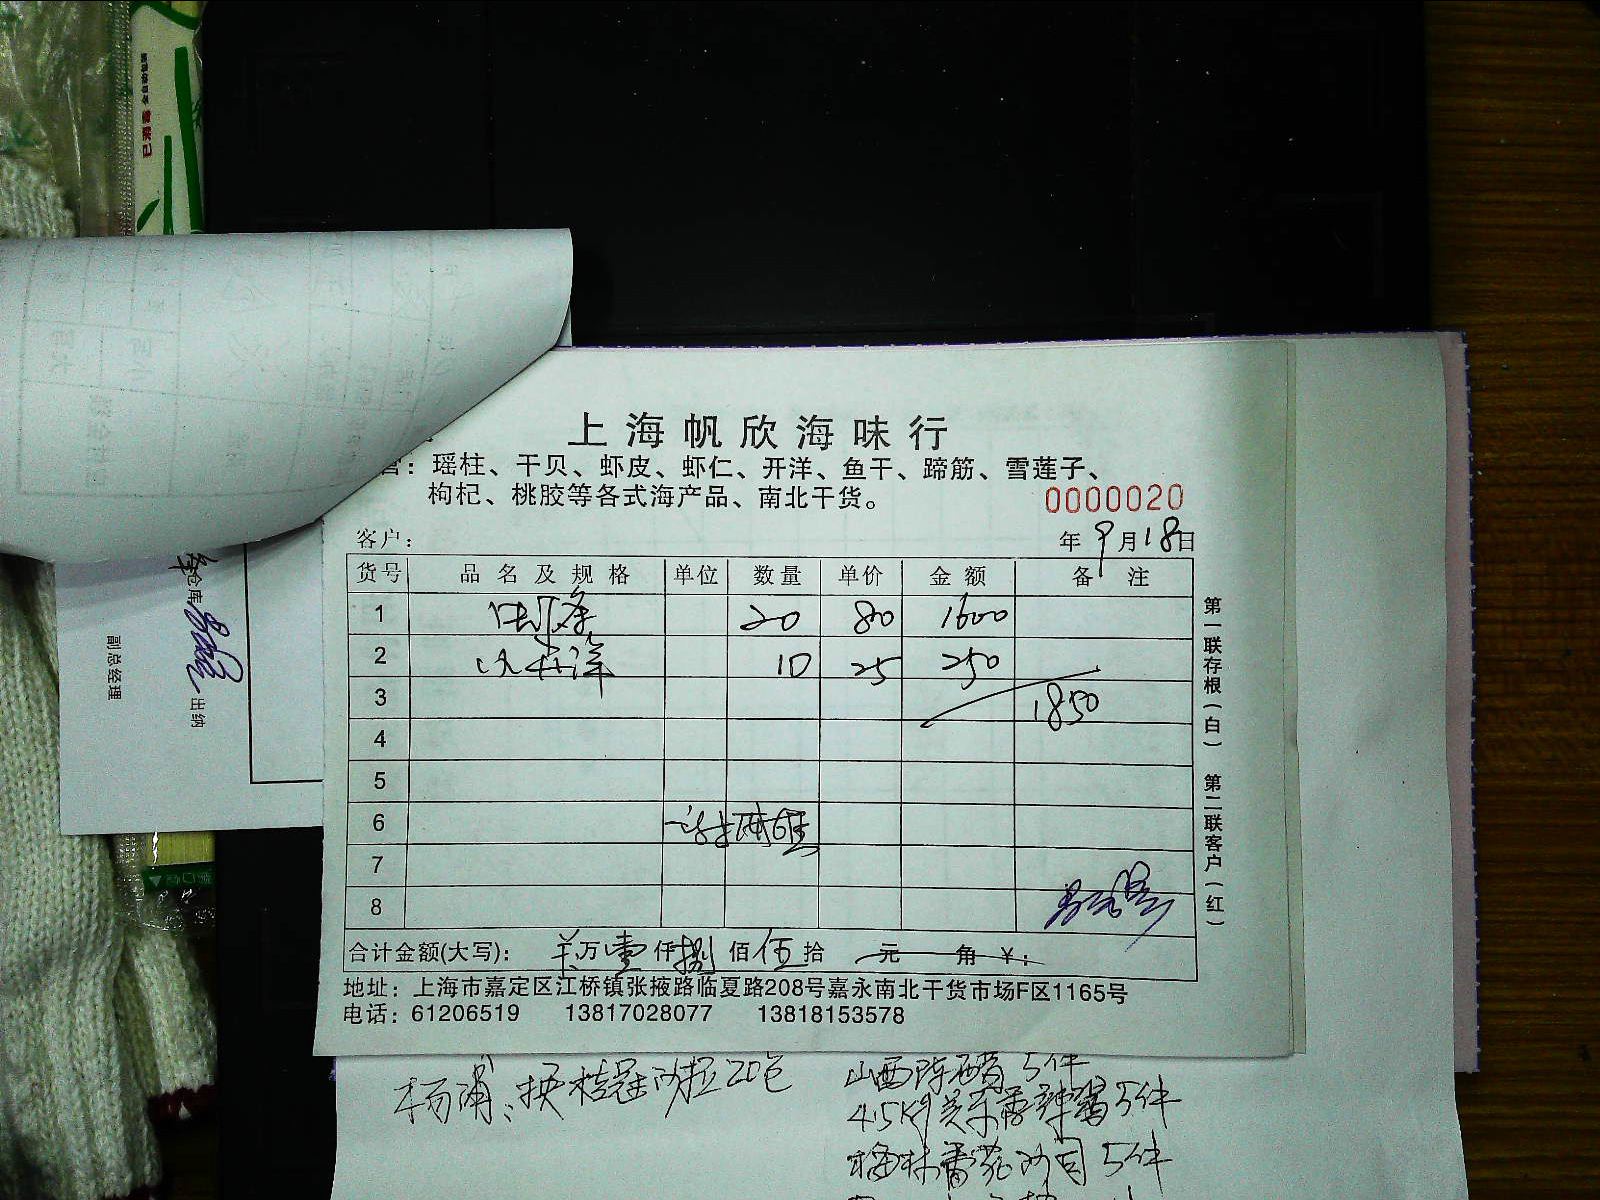 上海帆欣海味行
营：瑶柱、干贝、虾皮、虾仁、开洋、鱼干、蹄筋、雪莲子、
枸杞、桃胶等各式海产品、南北干货。
0000020
客户： 年 9月18日
货号 品名及规格 单位 数量 单价 金额 备注
1 20 80 1600
2 10 25 250
3 1850
4
5
6
7
8
合计金额(大写)： 万壹仟捌佰伍拾 元 角 ￥：
地址：上海市嘉定区江桥镇张掖路临夏路208号嘉永南北干货市场F区1165号
电话：61206519 13817028077 13818153578
第一联存根（白） 第二联客户（红）
仓库
出纳
副总经理
杨浦：换桂冠沙拉20包
山西陈醋5件
4.5Kg 香辣酱5件
番茄沙司5件
已消毒